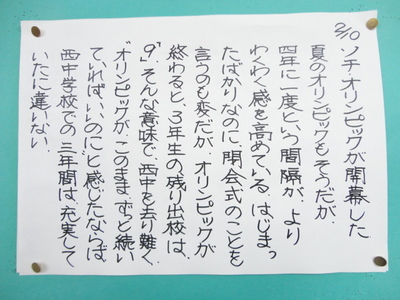 2/10 ソチオリンピックが開幕した
夏のオリンピックもそうだが、
四年に一度という間隔が、より
わくわく感を高めている。はじまっ
たばかりなのに、閉会式のことを
言うのも変だが、オリンピックが
終わると、3年生の残り出校は、
"9"。そんな意味で、西中を去り難く、
"オリンピックが、このまま、ずっと続い
ていれば、いいのに"と感じたならば、
西中学校での三年間は、充実して
いたに違いない。